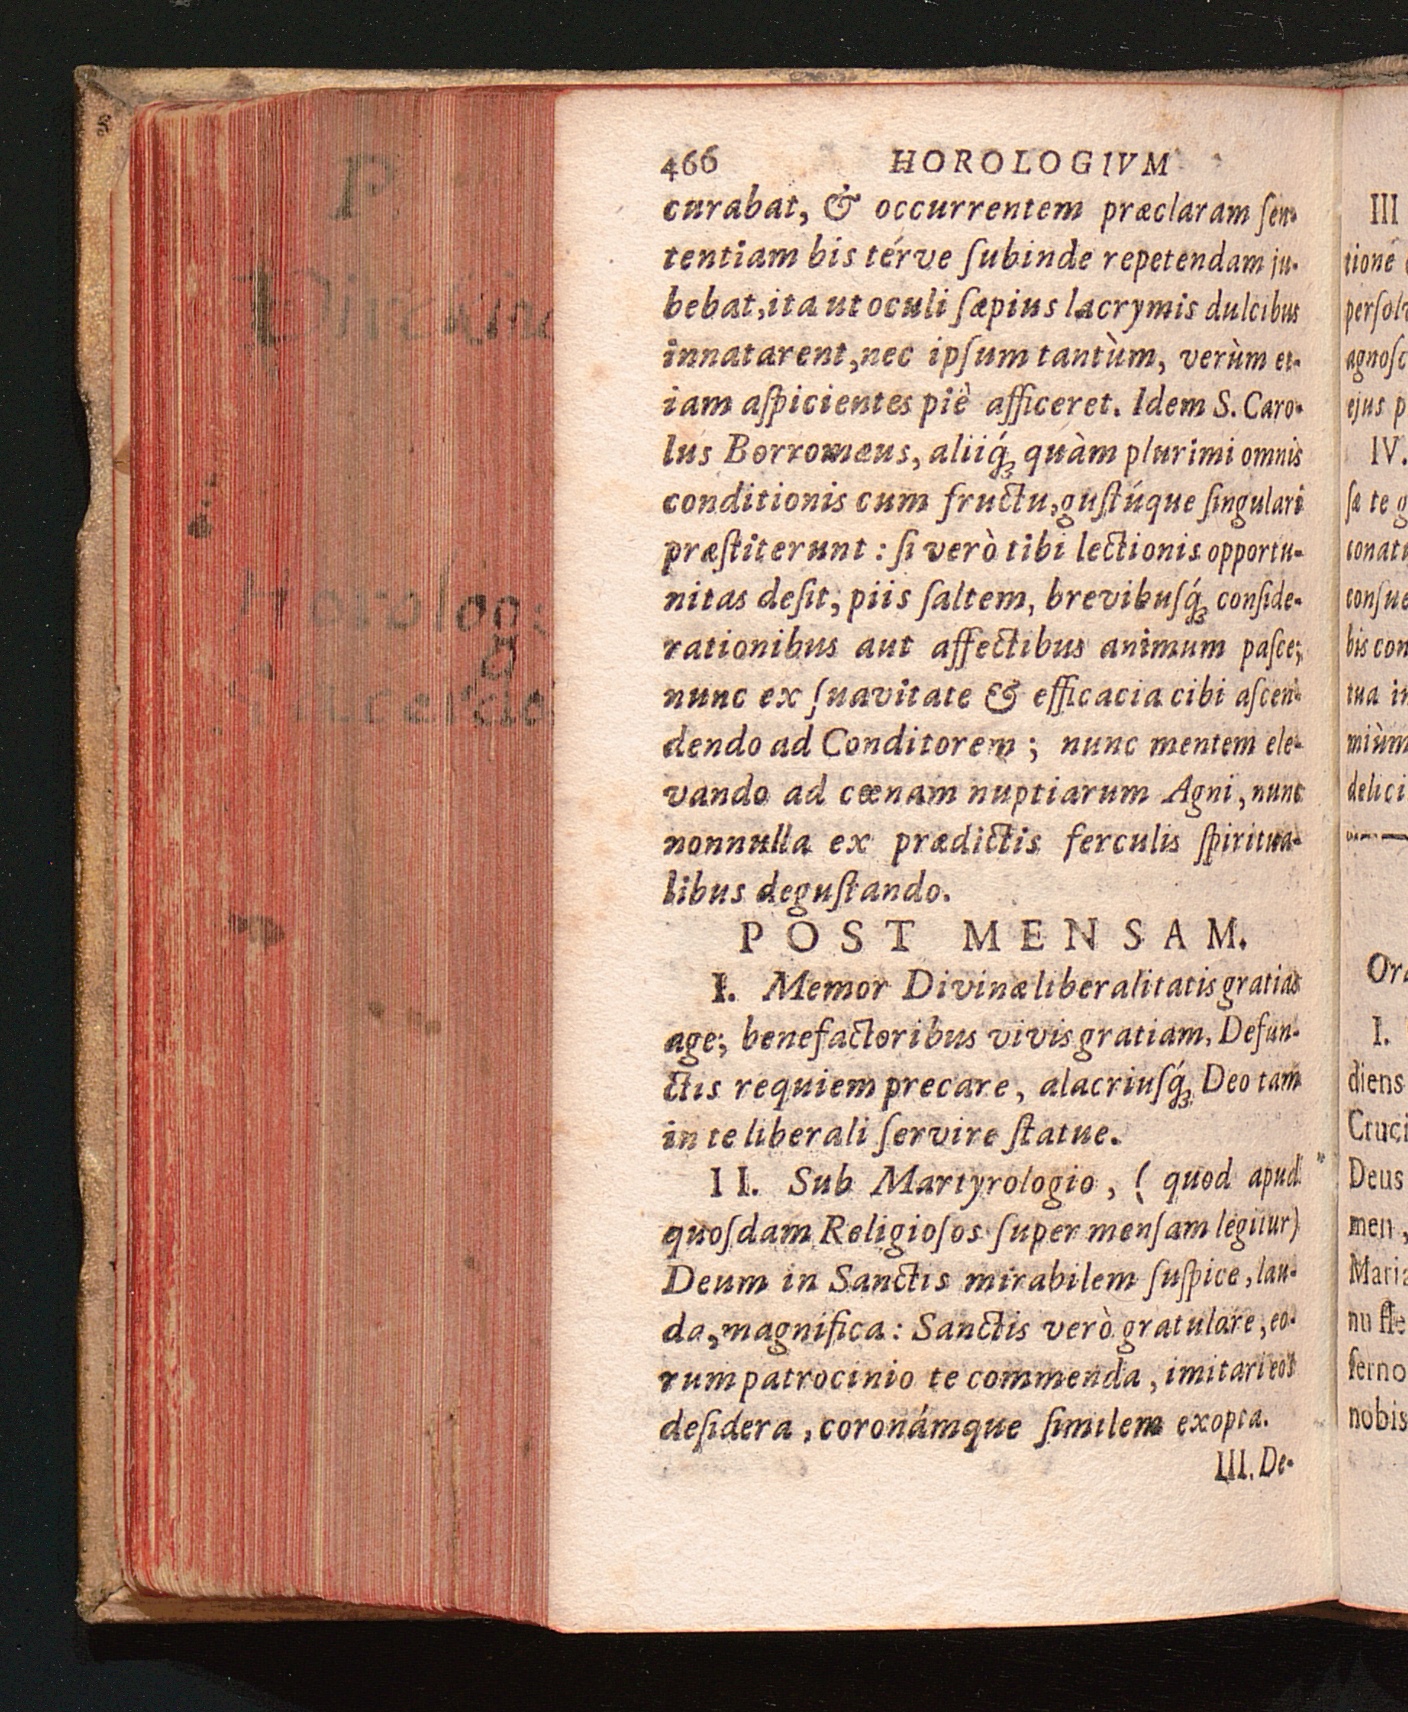 466 HOROLOGIVM
curabat, & occurrentem præclaram ſen-
tentiam bis térve ſubinde repetendam ju-
bebat, ita ut oculi ſæpius lacrymis dulcibus
innatarent, nec ipſum tantùm, verùm et-
iam aſpicientes piè afficeret. Idem S. Caro-
lus Borromæus, aliiq́ꝫ quàm plurimi omnis
conditionis cum fructu, guſtúque ſingulari
præſtiterunt : ſi verò tibi lectionis opportu-
nitas deſit, piis ſaltem, brevibuſq́ꝫ conſide-
rationibus aut affectibus animum paſce;
nunc ex ſuavitate & efficacia cibi aſcen-
dendo ad Conditorem ; nunc mentem ele-
vando ad cœnam nuptiarum Agni, nunc
nonnulla ex prædictis ferculis ſpiritua-
libus deguſtando.
POST MENSAM.
I. Memor Divinæ liberalitatis gratias
age; benefactoribus vivis gratiam, Defun-
ctis requiem precare, alacriuſq́ꝫ Deo tam
in te liberali ſervire ſtatue.
II. Sub Martyrologio, ( quod apud
quoſdam Religioſos ſuper menſam legitur)
Deum in Sanctis mirabilem ſuſpice, lau-
da, magnifica : Sanctis verò gratulare, eo-
rum patrocinio te commenda, imitari eos
deſidera, coronámque ſimilem exopta.
III. De-
P.
Horolog
III
tione
perſolv
agnoſc
ejus p
IV.
ſæ te g
conat
conſue
bis con
tua in
miùm
delici
Ora
I.
diens
Cruci
Deus
men,
Maria
nu fle
ferno
nobis